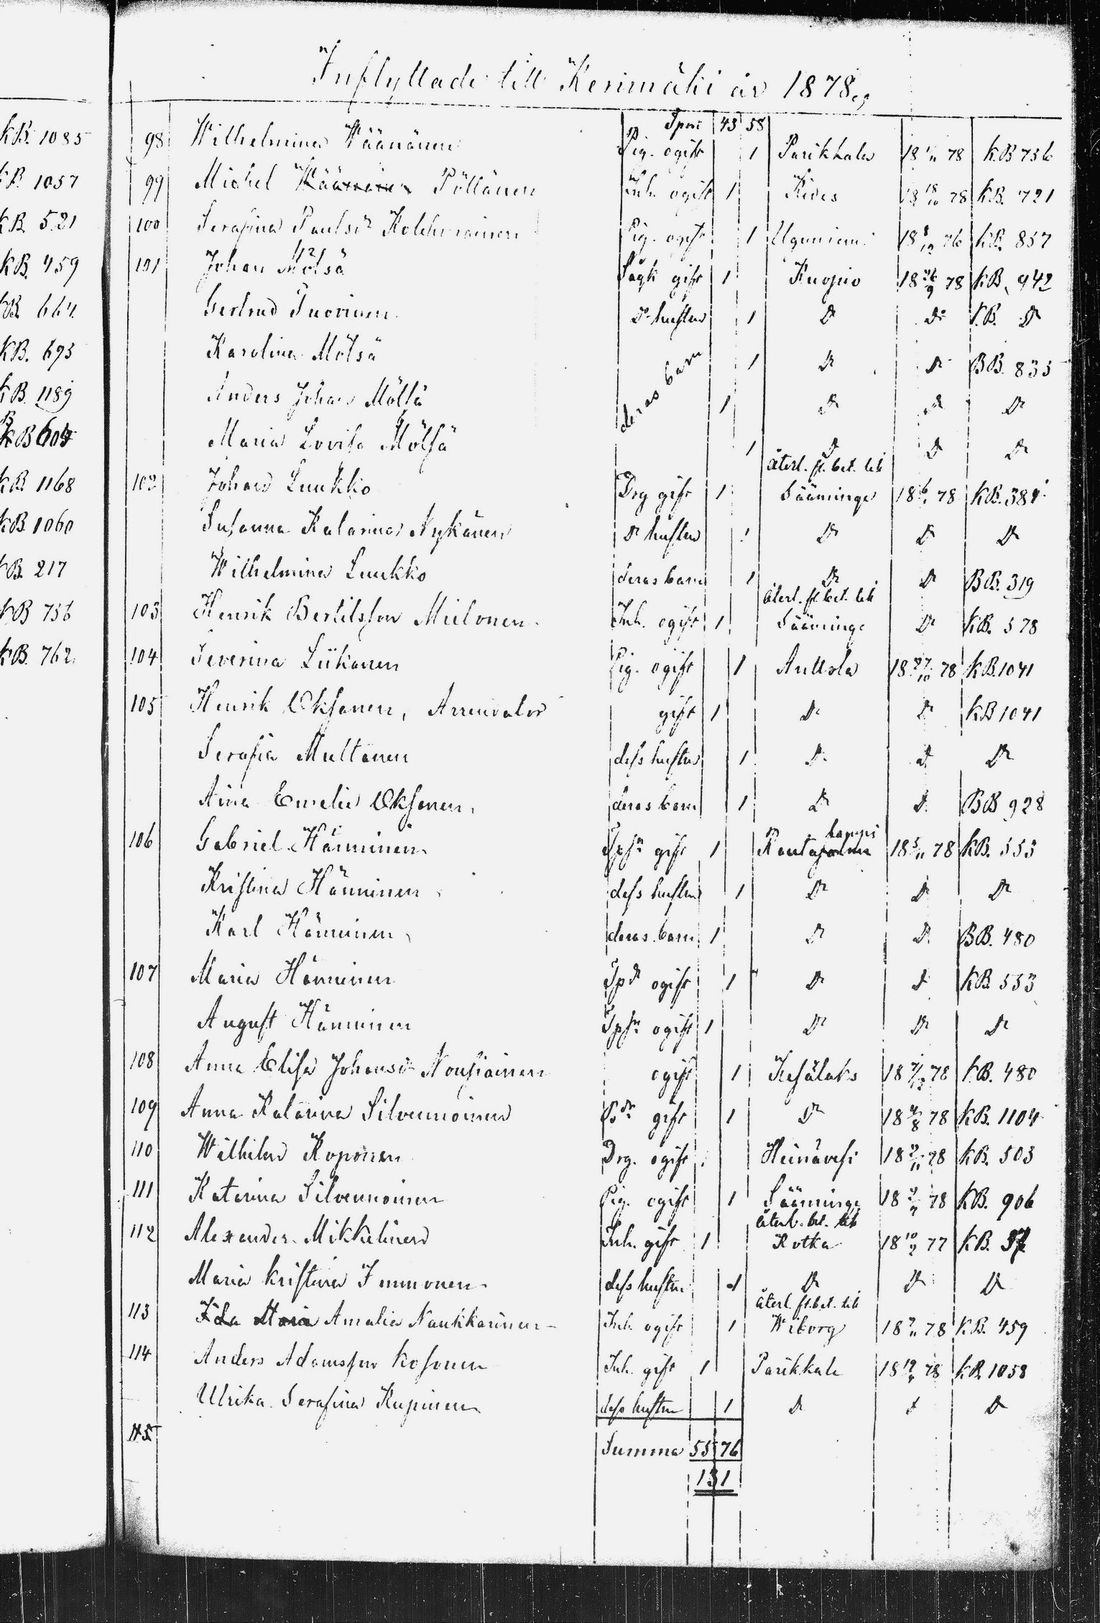 Inflyttade till Kerimäki år 1878
Tpori 43 58
KB. 1085
KB. 1057
KB. 521
KB. 459
KB. 664
KB. 693
KB. 1189
KB 604
KB. 1168
KB 1060
KB. 217
KB 756
KB. 762
98 Wilhelmina Väänänen Pig. ogift 1 Parikkala 18 78 KB 756
99 Michel Pöllänen Inh. ogift 1 Kides 18 78 KB. 721
100 Serafina Paulsdr Kolehmainen Pig. ogift 1 18 76 KB. 857
101 Johan Mölsä gift 1 Kuopio 18 26/9 78 KB. 942
Gertrud Tuovinen Ds hustru 1 Do Do KB. Do
Karolina Mölsä deras barn 1 Do Do BB. 835
Anders Johan Mölsä 1 Do Do Do
Maria Lovisa Mölsä 1 Do Do Do
102 Johan Luukko Drg gift 1 återl. fl. bet. lik Sääminge 18 78 KB. 384
Susanna Katarina Nykänen Ds hustru 1 Do Do Do
Wilhelmina Luukko deras barn 1 Do Do BB. 319
103 Henrik Bertilsson Mielonen Inh. ogift 1 återl. fl. bet. lik Sääminge Do KB. 578
104 Severina Liikanen Pig. ogift 1 Anttola 18 27/10 78 KB 1041
105 Henrik Oksanen, Arrendator gift 1 Do Do KB 1041
Serafia Multanen dess hustru 1 Do Do Do
Aina Emelie Oksanen deras barn 1 Do Do BB 928
106 Gabriel Hänninen gift 1 Rantasalmi 18 5/11 78 KB. 553
Kristina Hänninen dess hustru 1 Do Do Do
Karl Hänninen deras barn 1 Do Do BB. 480
107 Maria Hänninen ogift 1 Do Do KB 553
August Hänninen ogift 1 Do Do Do
108 Anna Elisa Johansdr Nousiainen ogift 1 Kesälaks 18 78 KB. 480
109 Anna Katarina Silvennoinen gift 1 Do 18 78 KB. 1104
110 Wilhelm Koponen Drg. ogift 1 Heinävesi 18 78 KB. 503
111 Katarina Silvennoinen Pig. ogift 1 Sääminge 18 78 KB. 906
112 Alexander Mikkelinen Inh. gift 1 återl. bet. lik Kotka 18 77 KB. 57
Maria Kristina Immonen dess hustru 1 Do Do Do
113 Ida Amalia Naukkarinen Inh. ogift 1 återl. fl. bet. lik Wiborg 18 78 KB. 459
114 Anders Adamsson Kosonen Inh. gift 1 Parikkala 18 78 KB. 1058
Ulrika Serafina Kupinen dess hustru 1 Do Do Do
115
Summa 55 76
131